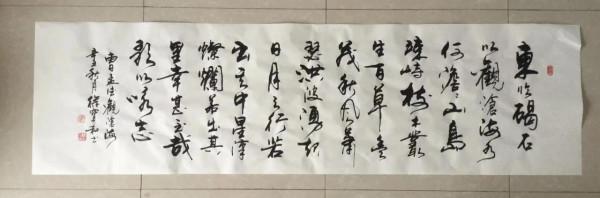 東临碣石
以觀滄海水
何澹澹山島
竦峙树木叢
生百草豊
茂秋風蕭
瑟洪波湧起
日月之行若
出其中星漢
燦爛若出其
里幸甚至哉
歌以咏志
曹孟德觀滄海
秋月 书